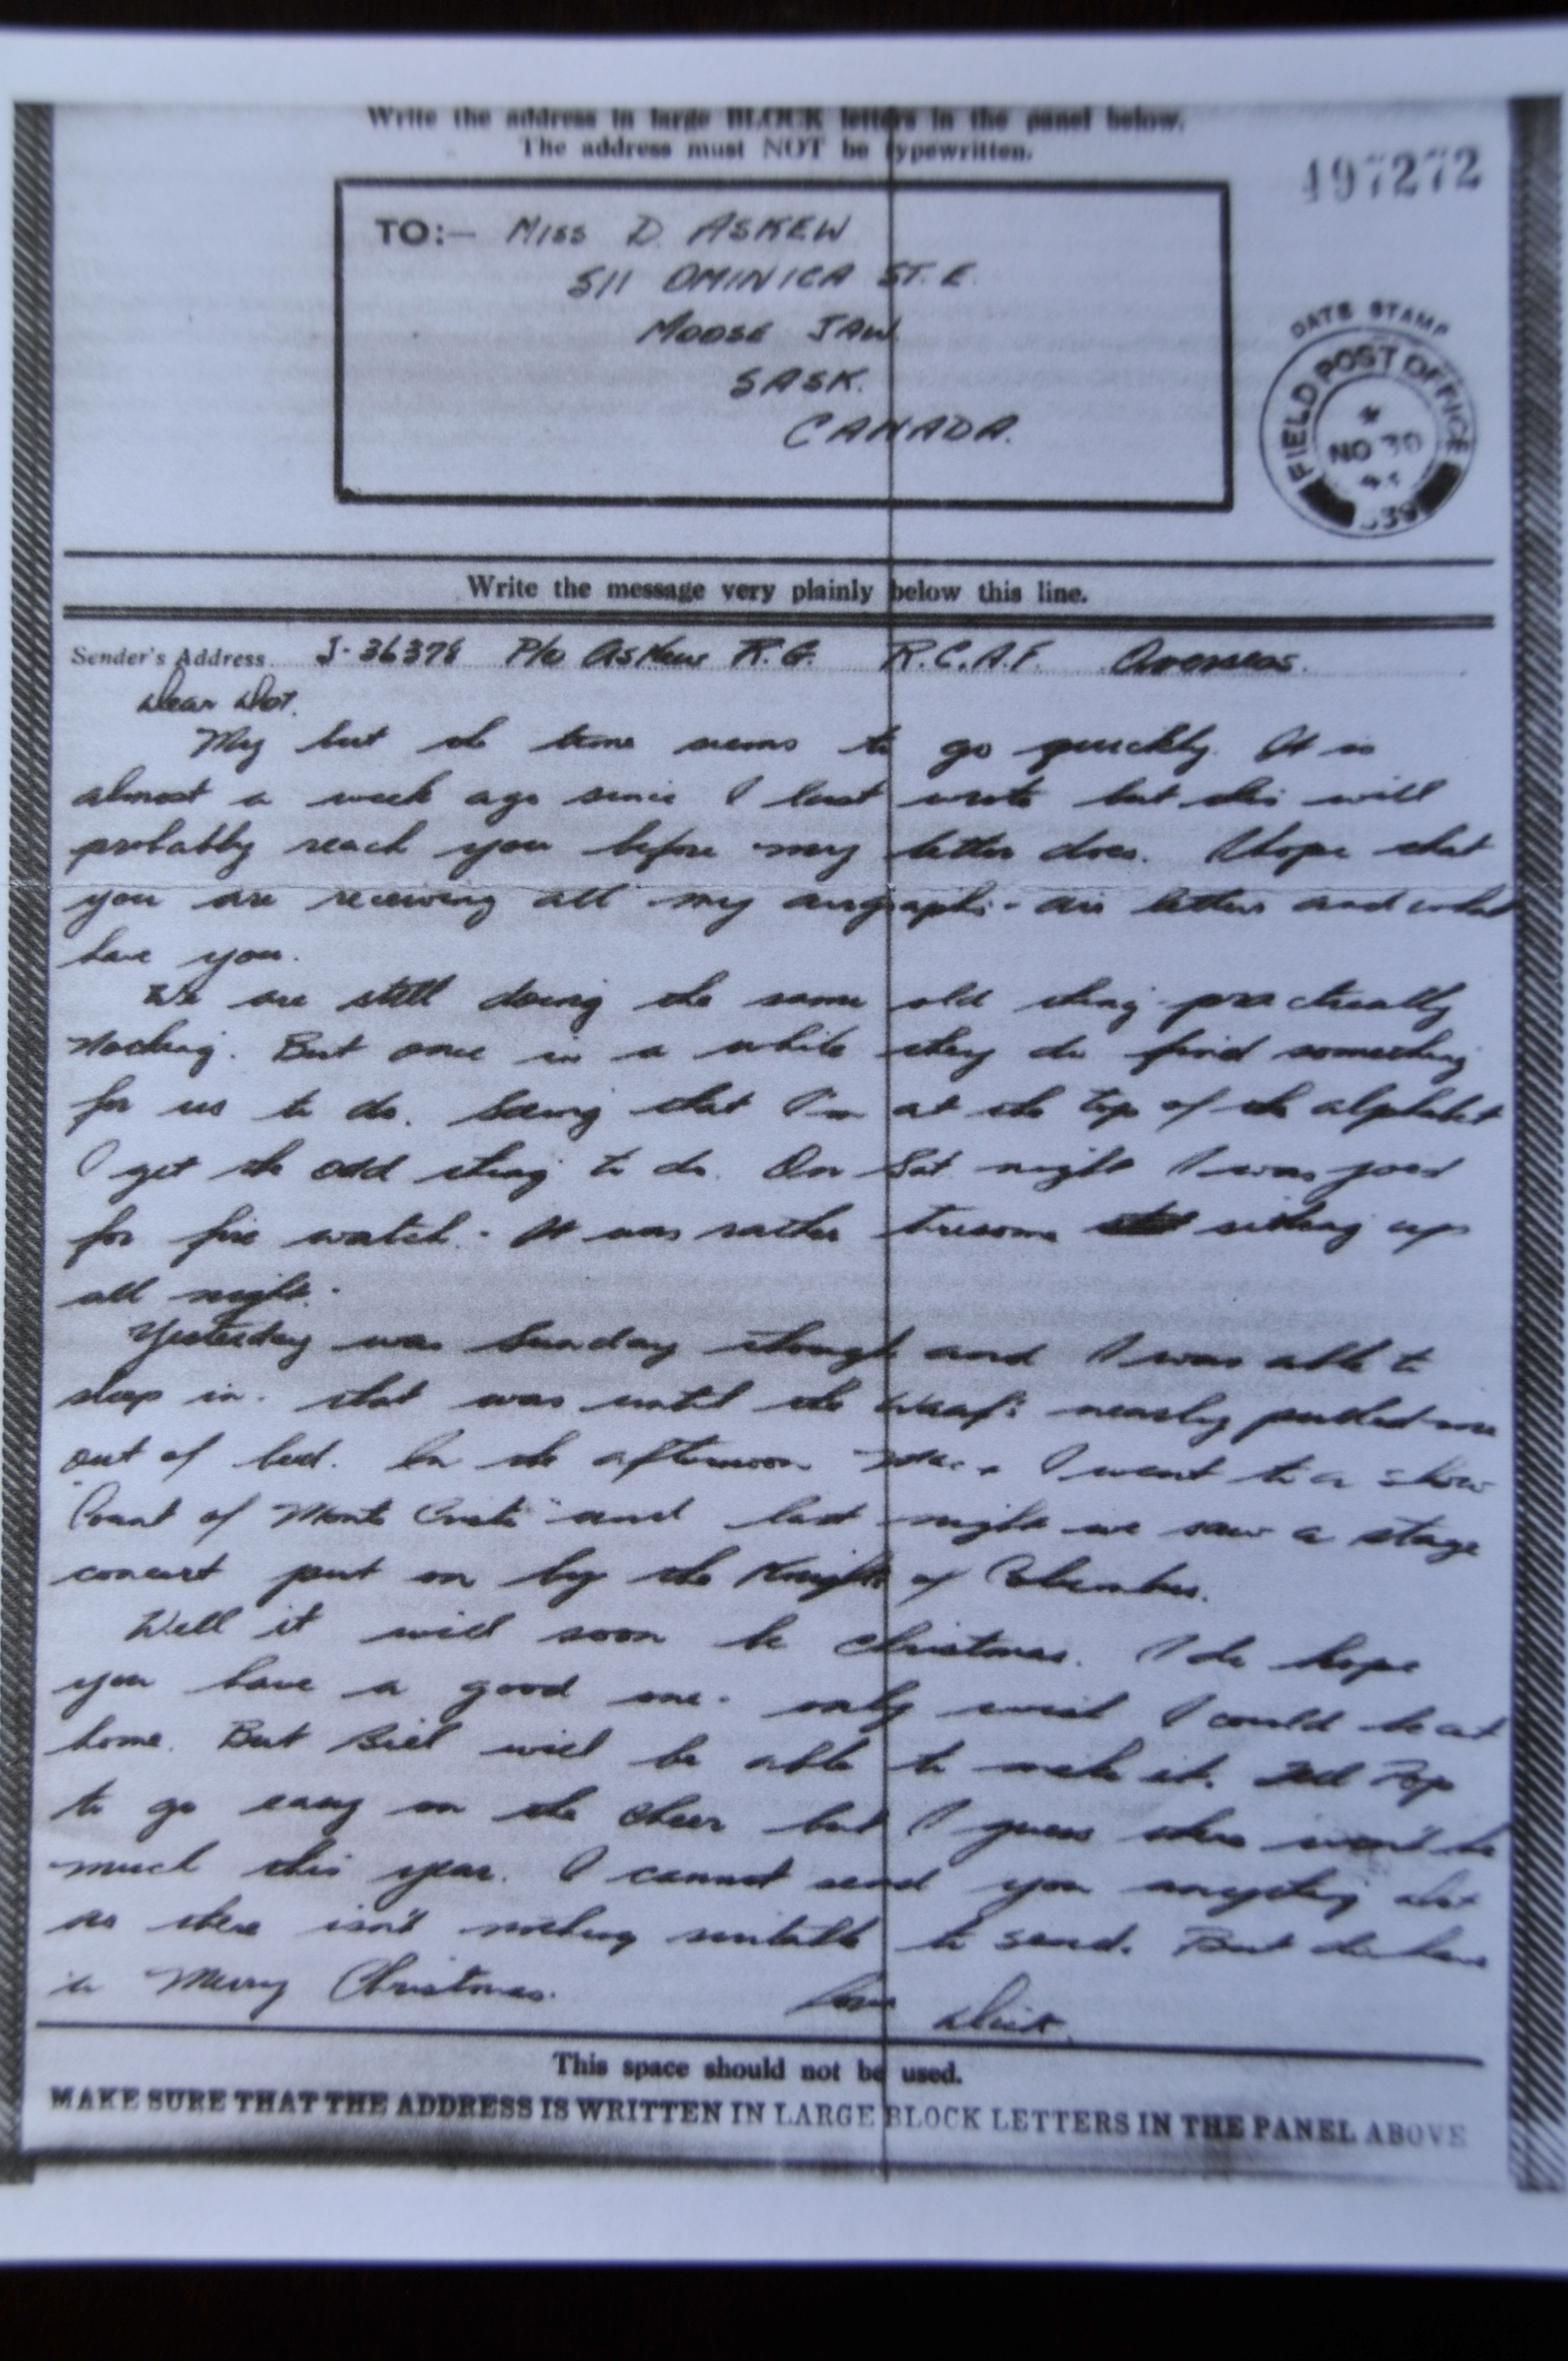 Write the address in large BLOCK letters in the panel below.
The address must NOT be typewritten.
497272
TO:— MISS D. ASKEW
511 OMINICA ST. E.
MOOSE JAW
SASK.
CANADA.
DATE STAMP
FIELD POST OFFICE
NO 30
43
Write the message very plainly below this line.
Sender's Address J-36378 P/O Askew R.G. R.C.A.F. Overseas.
Dear Dot.
My but the time seems to go quickly. It is
almost a week ago since I last wrote but this will
probably reach you before my letter does. I hope that
you are receiving all my airgraphs - air letters and what
have you.
We are still doing the same old thing - practically
nothing. But once in a while they do find something
for us to do. Seeing that I'm at the top of the alphabet
I get the odd thing to do. On Sat. night I was
for fire watch. - It was rather tiresome sitting up
all night.
Yesterday was Sunday though and I was able to
sleep in. that was until the Waafs nearly pulled me
out of bed. In the afternoon I went to a show
"Count of Monte Cristo" and last night we saw a stage
concert put on by the Knights of Columbus.
Well it will soon be Christmas. I do hope
you have a good one. only wish I could be at
home. But Bill will be able to make it. Tell Pop
to go easy on the cheer but I guess there won't be
much this year. I cannot send you anything Dot
as there isn't nothing suitable to send. But do have
a Merry Christmas.
Love
Dick.
This space should not be used.
MAKE SURE THAT THE ADDRESS IS WRITTEN IN LARGE BLOCK LETTERS IN THE PANEL ABOVE